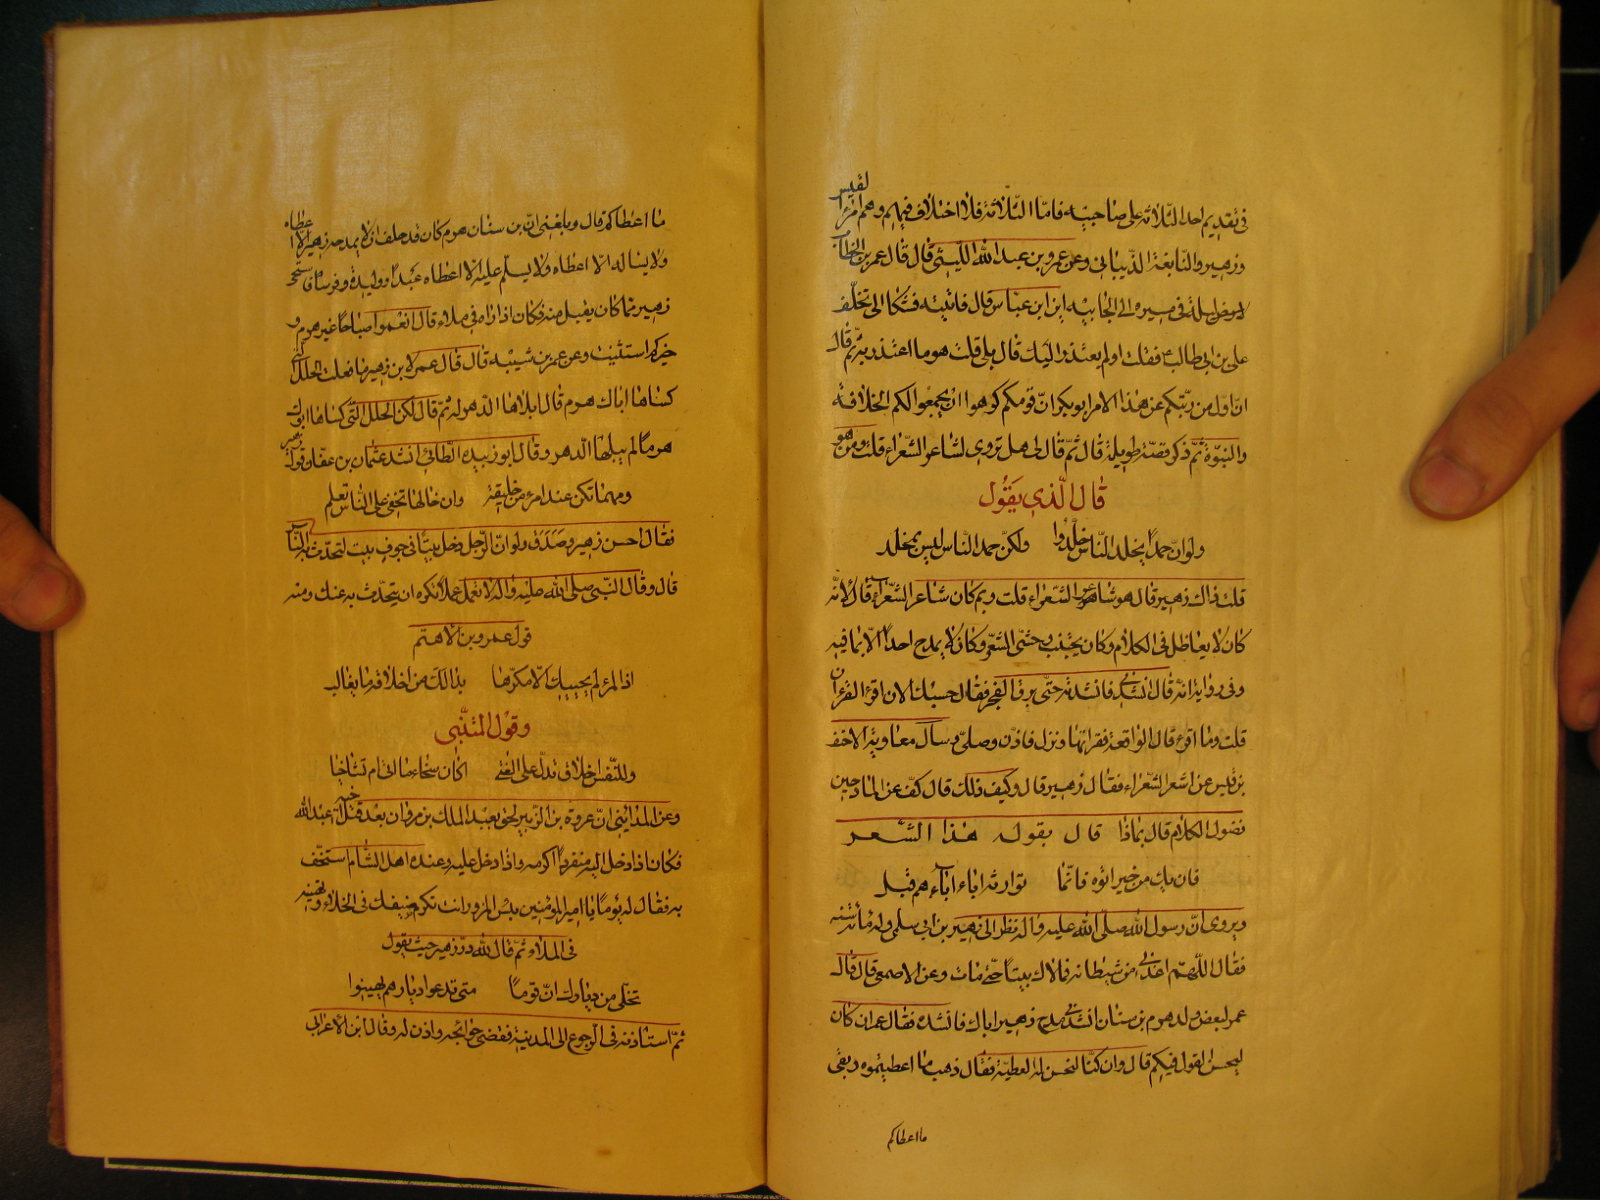 فى تقديم احد الثلاثة على صاحبيه فامّا الثلاثة فلا اختلاف فيهم وهم امرء القيس
وزهير والنابغة الذبيانى وعن عمرو بن عبد الله الليثى قال قال عمر بن الخطاب
ليلة فى مسيره الى الجابيه اين ابن عباس قال فاتيته فشكا الى تخلّف
على بن ابى طالب ع فقلت اولم يعتذر اليك قال بلى قلت هو ما اعتذر به ثم قال
انّ اول من ربّكم عن هذا الامر ابوبكر انّ قومكم كرهوا ان يجمعوا لكم الخلافة
والنبوّة ثمّ ذكر قصّة طويلة قال ثمّ قال لى هل تروى لشاعر الشّعراء قلت ومن هو
قال الّذى يقول
ولو انّ حمدًا يخلد النّاس خلّدوا ولكنّ حمد النّاس ليس بمخلد
قلت ذاك زهير قال هو شاعر الشعراء قلت وبم كان شاعر الشعراء قال لانّه
كان لا يعاظل فى الكلام وكان يجتنب وحشى الشعر وكان لا يمدح احدًا الّا بما فيه
وفى رواية انّه قال انشدنى فانشدته حتّى برق الفجر فقال حسبك الان اقرء القران
قلت وما اقرء قال الواقعة فقراتها ونزل فاذّن وصلّى وسأل معاوية الاحنف
بن قيس عن اشعر الشعراء فقال زهير قال وكيف ذلك قال كفّ عن المادحين
فضول الكلام قال بماذا قال بقوله هذا الشعر
فان يك من خير اتوه فانّما توارثه اباء اباءهم قبل
ويروى انّ رسول الله صلّى الله عليه واله نظر الى زهير بن ابى سلمى وله مائة سنه
فقال اللّهمّ اعذنى من شيطانه فما لاك بيتًا حتى مات وعن الاصمعى قال قال
عمر لبعض ولد هرم بن سنان انشدنى مدح زهير اباك فانشده فقال عمر ان كان
ليحسن القول فيكم قال وان كنّا لنحسن له العطيّة فقال ذهب ما اعطيتموه وبقى
ما اعطاكم
ما اعطاكم قال وبلغنى انّ بن سنان هرم كان قد حلف ان لا يمدحه زهير الا اعطاه
ولا يساله الا اعطاه ولا يسلّم عليه الا اعطاه عبدًا او وليدة او فرسا فاستحى
زهير ممّا كان يقبل منه فكان اذا راه فى ملاء قال انعموا صباحًا غير هرم و
خيركم استثنيت وعن عمر بن شيبه قال قال عمر لابن زهير ما فعلت الحلل التى
كساها اباك هرم قال ابلاها الدهر له ثمّ قال لكن الحلل التّى كساها ابوك
هرمًا لم يبلها الدهر وقال ابو زبيد الطّائى انشد عثمان بن عفان قول زهير
ومهما تكن عند امرء من خليقة وان خالها تخفى على النّاس تعلم
فقال احسن زهير وصدق ولو انّ الرّجل دخل بيتًا فى جوف بيت لتحدّث به النّاس
قال وقال النّبىّ صلى الله عليه واله لا تعمل عملًا تكره ان يتحدّث به عنك ومنه
قول عمرو بن الاهتم
اذا المرء لم يحببك الّا مكرّها بذالك من اخلاقه ما يغالب
وقول المتنبّى
وللنّفس اخلاق تدلّ على الفتى اكان سخاء ما اتى ام تساخيا
وعن المدائينى انّ عروة بن الزّبير لحق بعبد الملك بن مروان بعد قتل اخيه عبد الله
فكان اذا دخل اليه منفردًا اكرمه واذا دخل عليه وعنده اهل الشّام استخّف
به فقال له يومًا يا امير المؤمنين بئس المزور انت تكرم ضيفك فى الخلاء وتهينه
فى الملاء ثمّ قال لله درّ زهير حيث يقول
تخلّى من ديارك انّ قومًا متى تدعوا ديارهم يهينوا
ثمّ استاذنه فى الرّجوع الى المدينة فقضى حوائجه واذن له وقال ابن الاعرابى